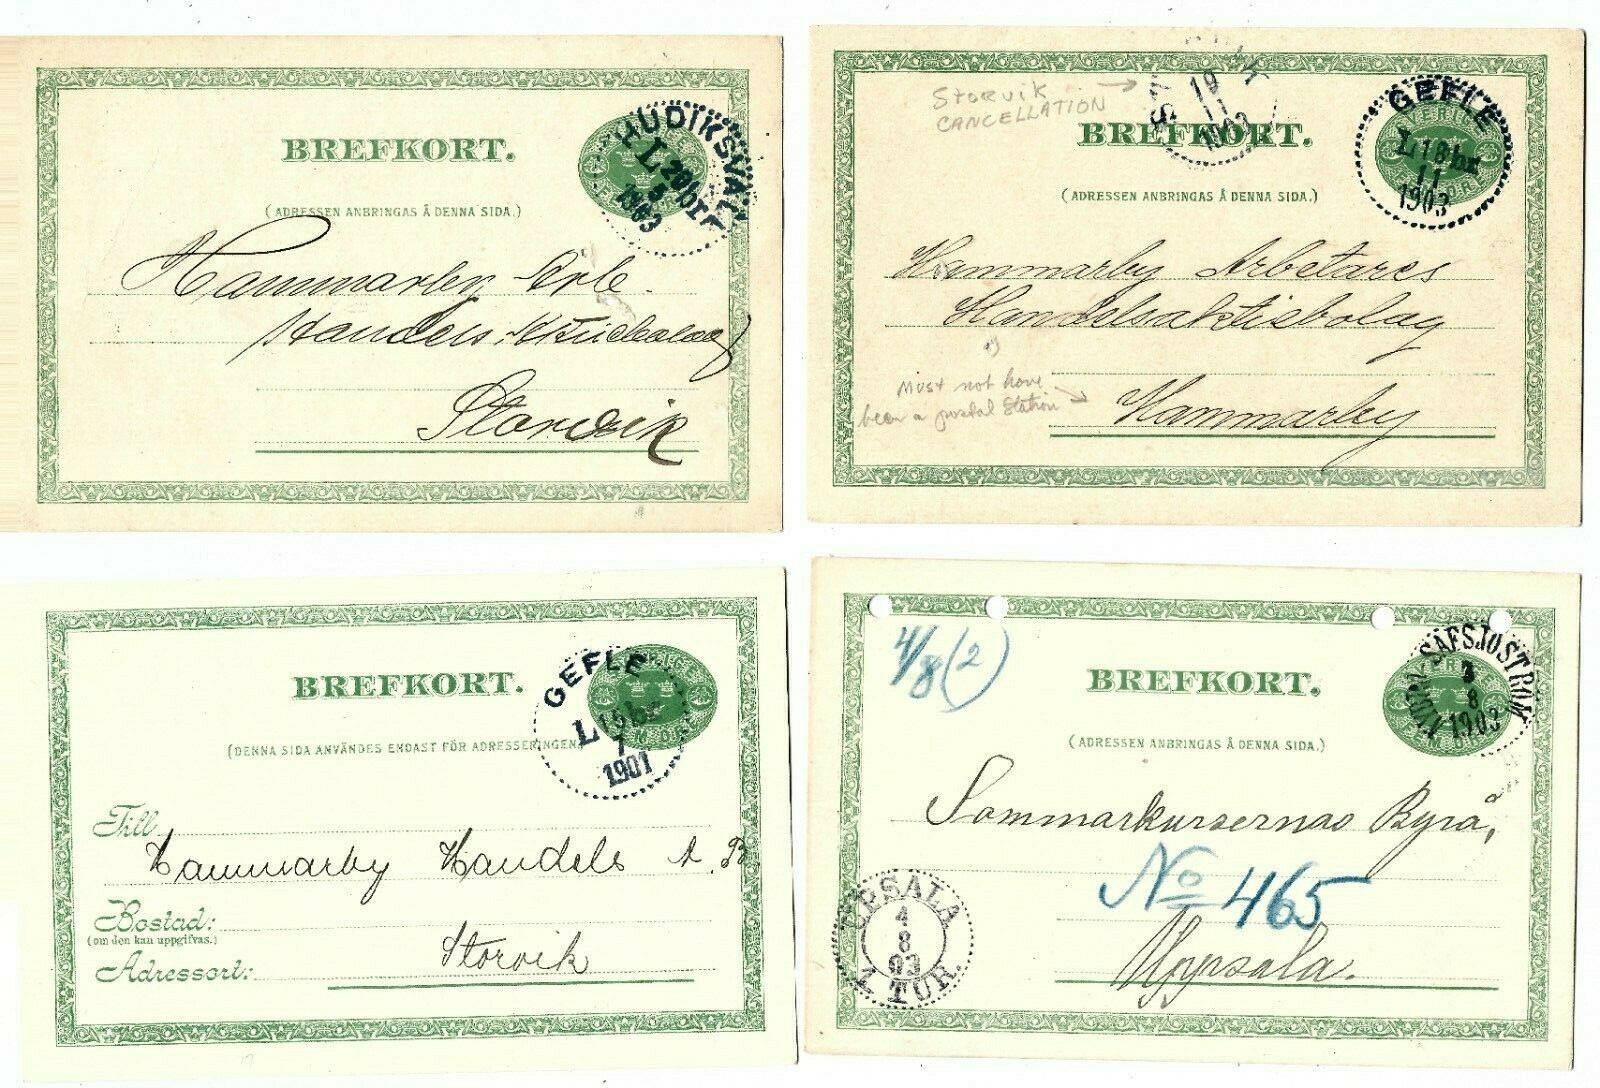 BREFKORT.
(ADRESSEN ANBRINGAS Å DENNA SIDA.)
HUDIKSVALL
L
1903
Hammarby Arb.
Storvik
Storvik
CANCELLATION
19
11
1903
BREFKORT.
(ADRESSEN ANBRINGAS Å DENNA SIDA.)
GEFLE
SVERIGE
L 18 br
11
1903
Hammarby Arbetares
Handelsaktiebolag
Must not have
been a postal station
Hammarby
BREFKORT.
(DENNA SIDA ANVÄNDES ENDAST FÖR ADRESSERINGEN.)
GEFLE
L
7
1901
Till
Hammarby Handels A. B.
Bostad:
(om den kan uppgifvas.)
Adressort:
Storvik
4/8 (2)
BREFKORT.
(ADRESSEN ANBRINGAS Å DENNA SIDA.)
SÄFSJÖSTRÖM
3
8
1903
Sommarkursernas Byrå,
No 465
Uppsala.
UPSALA
4
8
03
1 TUR.